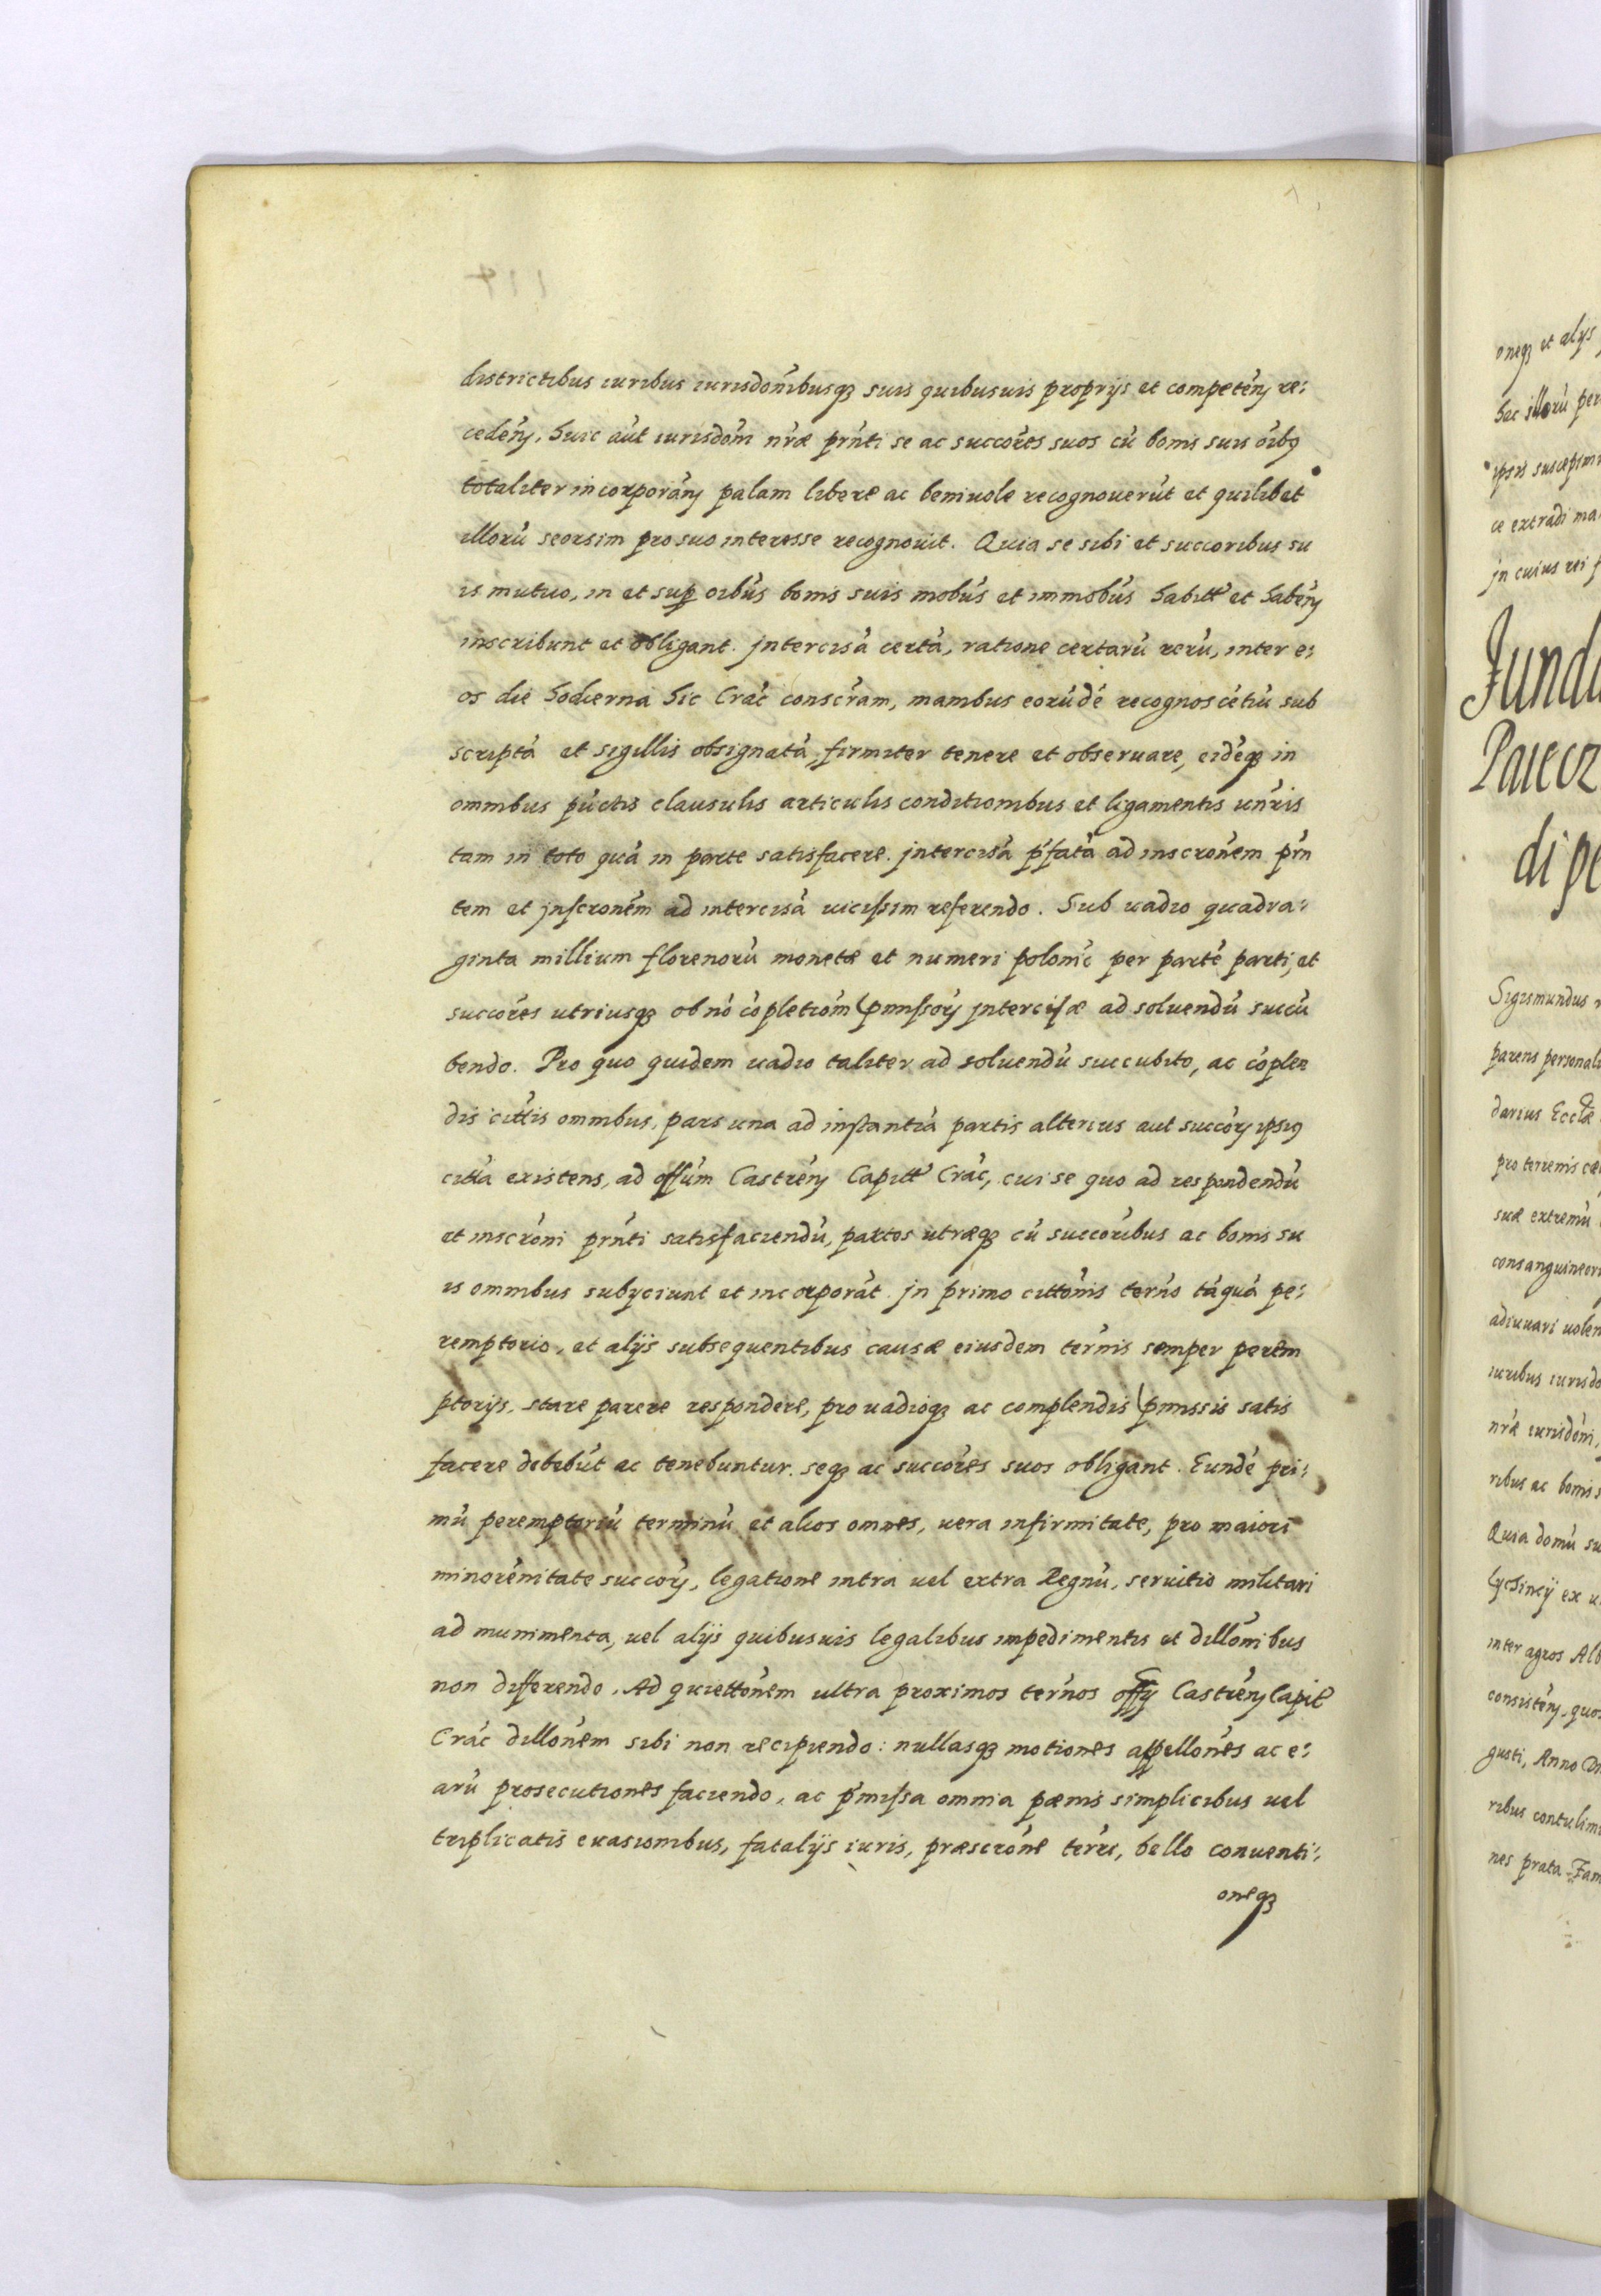 districtibus iuribus iurisdoñibusq3 suis quibusuis proprijs et competeñ re:
cedeñ. Huic aut́ iurisdoñi nr̃æ prñti se ac succores suos cú bonis suis oib9
totaliter incorporañ palam libere ac beniuole recognouerút et quilibet
illorú seorsim pro suo interesse recognouit. Quia se sibi et succoribus su
is mutuo, in et sup oibús bonis suis mobús et immobús habitt et habeñ
inscribunt et obligant. jntercisá certá, ratione certarú rerú, inter e:
os die hodierna hic Crac conscr̃am, manibus eorúdé recognoscétiú sub
scriptá et sigillis obsignatá, firmiter tenere et obseruare, eidéq3 in
omnibus púctis clausulis articulis conditionibus et ligamentis uñris
tam in toto quá in parte satisfacere. jntercisá ṕfatá ad inscronem prñ
tem et jnscroném ad intercisá uicissim referendo. Sub uadio quadra:
ginta millium florenorú monetæ et numeri polonic per parté parti, et
succores utriusq3 ob nó cópletióm pmissorý jntercisæ ad soluendú succú
bendo. Pro quo quidem uadio taliter ad soluendú succubito, ac cóplen
dis cittis omnibus, pars una ad instantiá partis alterius aut succorý ipsi9
citta existens, ad offúm Castreñ Capitt Crac, cui se quo ad respondendú
et inscroni prñti satisfaciendú, partes utræq3 cú succoribus ac bonis su
is omnibus subijciunt et incorporát. jn primo cittonis terno táquá pe:
remptorio, et alijs subsequentibus causæ eiusdem ternis semper perem
ptorijs, stare parere respondere, pro uadioq3 ac complendis pmissis satis
facere debebút ac tenebuntur. seq3 ac succores suos obligant. Eundé pri:
mú peremptoriú terminú et alios omnes, uera infirmitate, pro maiori
minorenitate succorý, legatione intra uel extra Regnú, seruitio militari
ad munimenta, uel alijs quibusuis legalibus impedimentis et dillonibus
non differendo. Ad quiettonem ultra proximos ternos offý Castreñ Capit
Crac dillonem sibi non recipiendo: nullasq3 motiones appellones ac e:
arú prosecutiones faciendo, ac ṕmissa omnia pænis simplicibus uel
triplicatis euasionibus, fatalijs iuris, præscrone terré, bello conuenti:
oneq3
oneq3 et alijs
hac illorú per
ipsis suscepim
ce extradi ma
jn cuius rei f
di pe
Sigismundus
parens personali
darius Eccl̃æ
pro terrenis cæ
suæ extremú
consanguineor
adiuuari uolen
iuribus iurisdo
nr̃æ iurisdoni,
ribus ac bonis
Quia domú su
inter agros Alb
consisteñ, quo
gusti, Anno
ribus contulim
nes prata